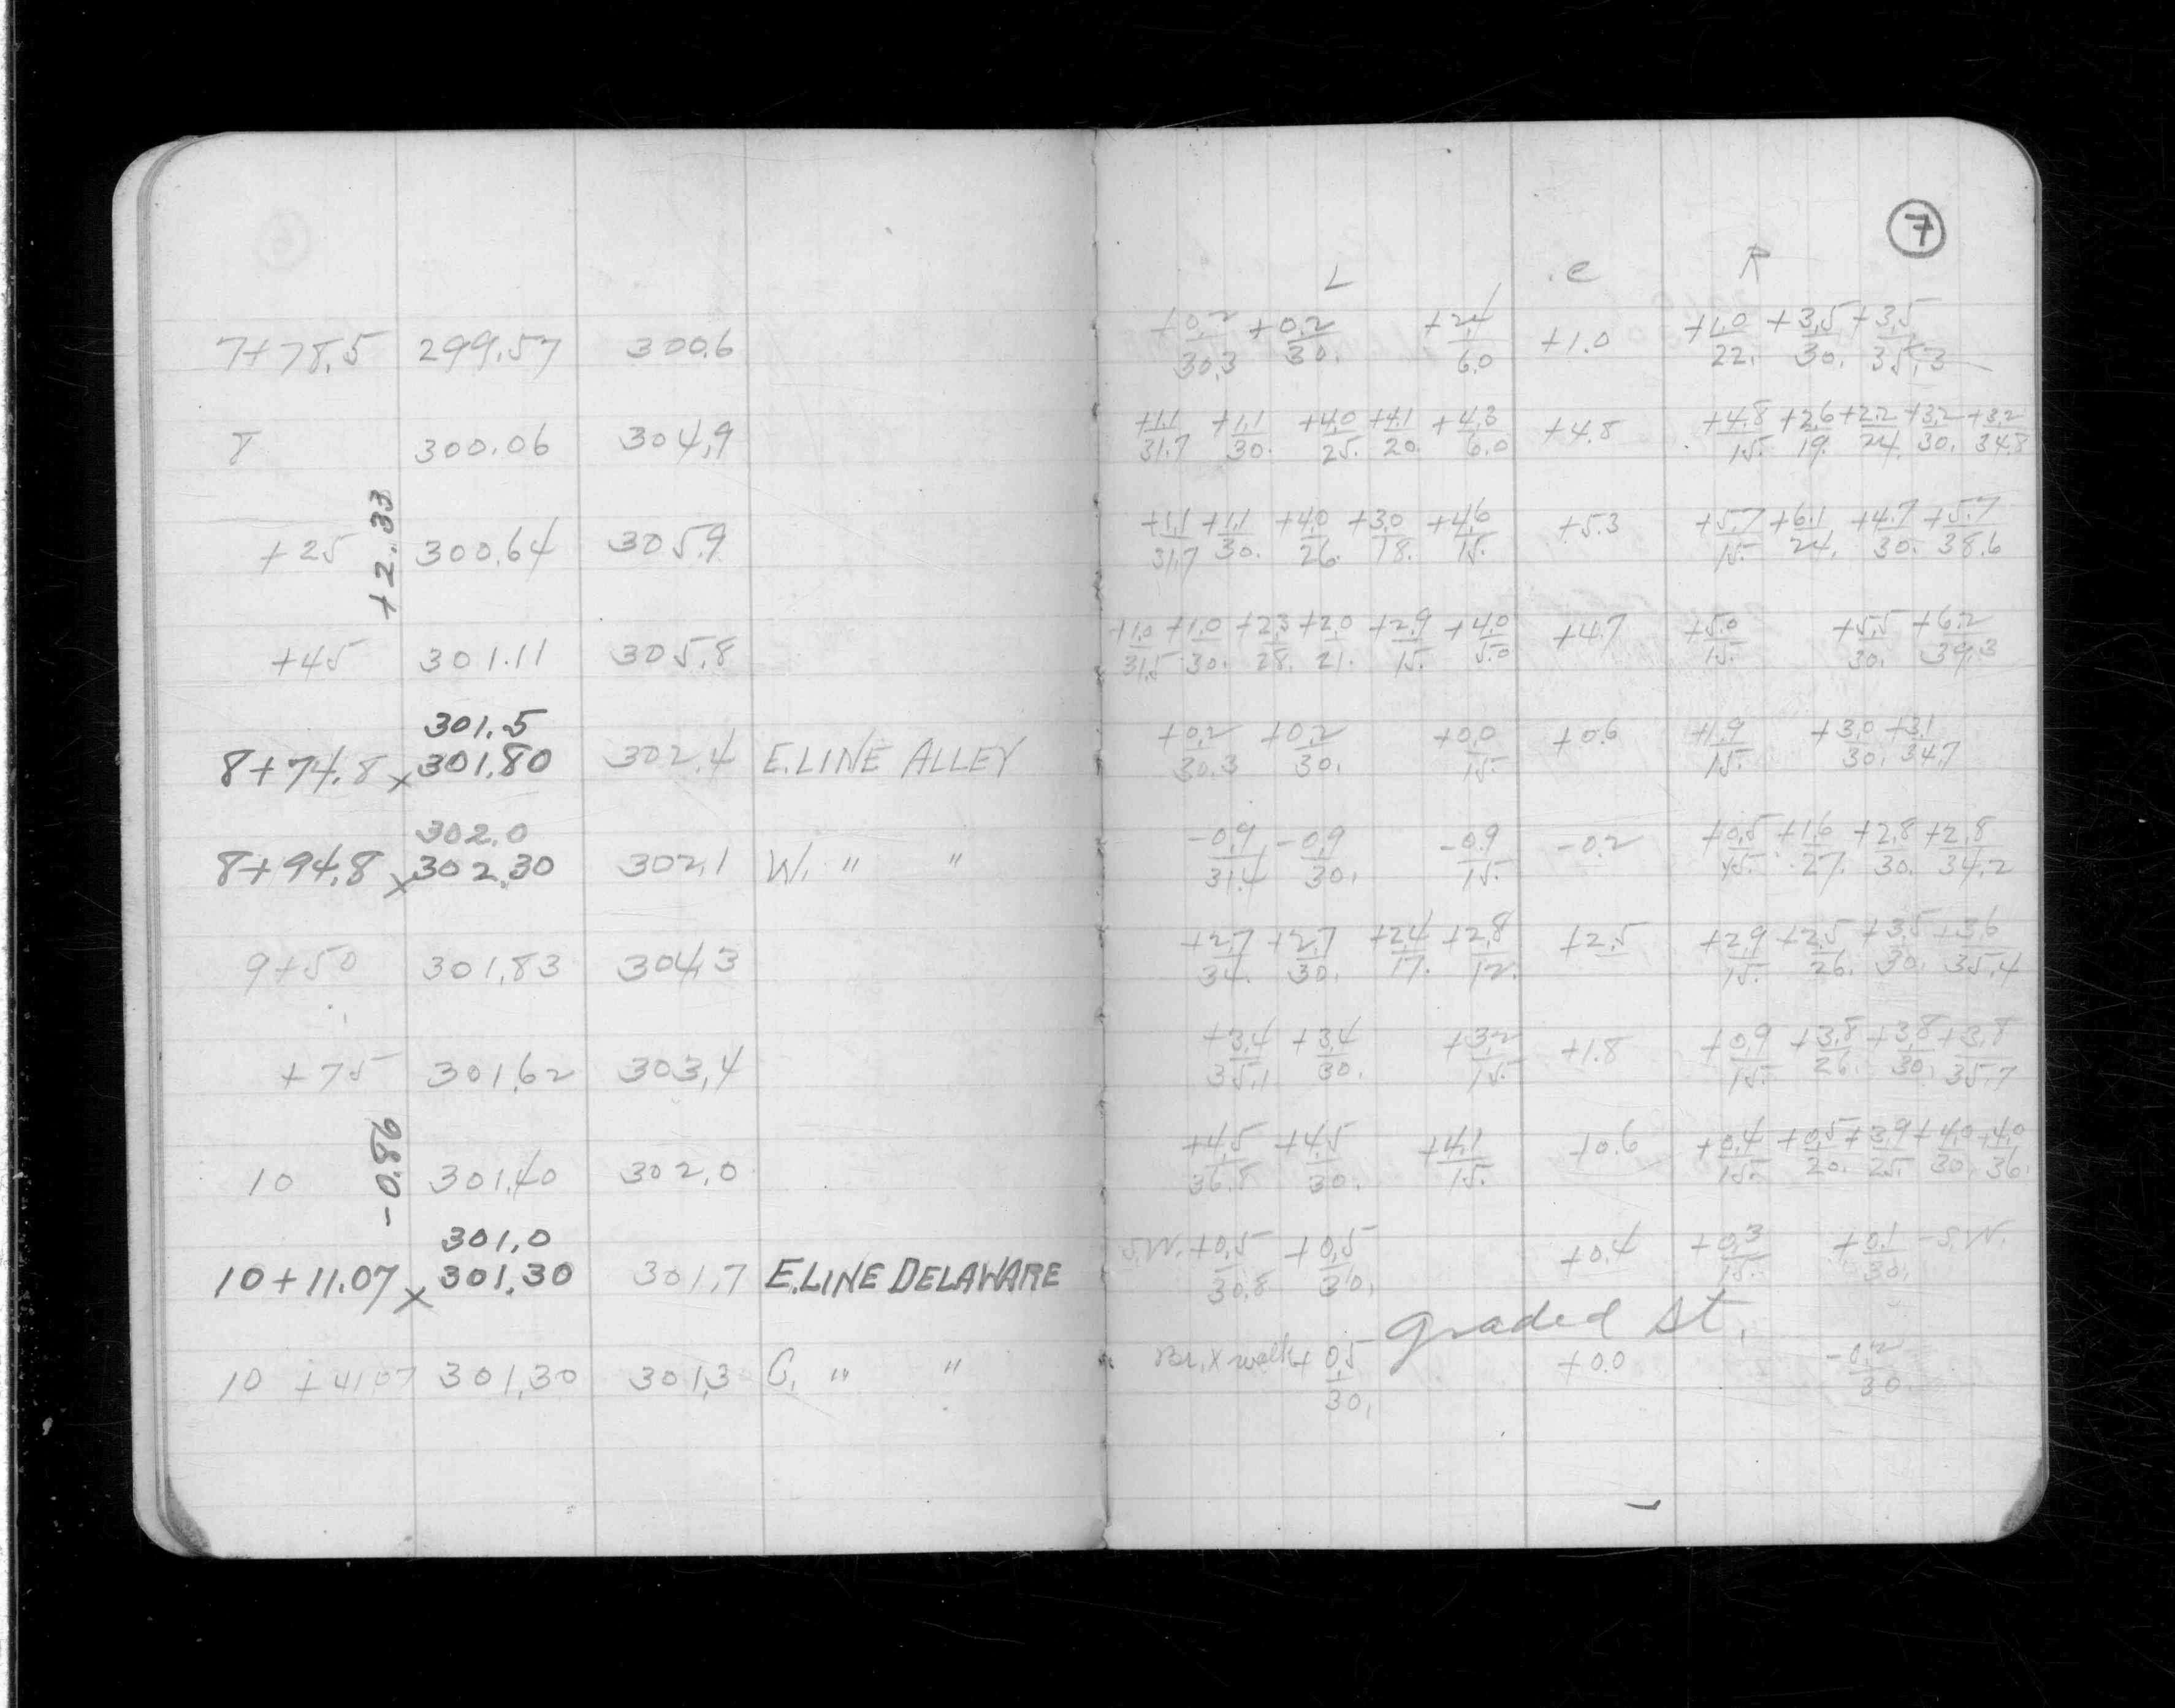 7
L C R
7+78.5 299.57 300.6
+0.2/30.3 +0.2/30. +2.4/6.0 +1.0 +1.0/22. +3.5/30. +3.5/35.3
8 300.06 304.9
+1.1/31.7 +1.1/30. +4.0/25. +4.1/20. +4.3/6.0 +4.8 +4.8/15. +2.6/19. +2.2/24. +3.2/30. +3.2/34.8
+2.33
+25 300.64 305.9
+1.1/31.7 +1.1/30. +4.0/26. +3.0/18. +4.6/15. +5.3 +5.7/15. +6.1/24. +4.7/30. +5.7/38.6
+45 301.11 305.8
+1.0/31.5 +1.0/30. +2.3/28. +2.0/21. +2.9/15. +4.0/5.0 +4.7 +5.0/15. +5.5/30. +6.2/39.3
301.5
8+74.8 x 301.80 302.4 E.LINE ALLEY
+0.2/30.3 +0.2/30. +0.0/15. +0.6 +1.9/15. +3.0/30. +3.1/34.7
302.0
8+94.8 x 302.30 302.1 W. " "
-0.9/31.4 -0.9/30. -0.9/15. -0.2 +0.5/15. +1.6/27. +2.8/30. +2.8/34.2
9+50 301.83 304.3
+2.7/34. +2.7/30. +2.4/17. +2.8/12. +2.5 +2.9/15. +2.5/26. +3.5/30. +3.6/35.4
+75 301.62 303.4
+3.4/35.1 +3.4/30. +3.2/15. +1.8 +0.9/15. +3.8/26. +3.8/30. +3.8/35.7
-0.86
10 301.40 302.0
+4.5/36.8 +4.5/30. +4.1/15. +0.6 +0.4/15. +0.5/20. +3.9/25. +4.0/30. +4.0/36.
301.0
10+11.07 x 301.30 301.7 E.LINE DELAWARE
S.W. +0.5/30.8 +0.5/30. +0.4 +0.3/15. +0.1/30. -S.W.
graded St.
10 +41.07 301.30 301.3 C. " "
Br. X walk +0.5/30. +0.0 -0.2/30